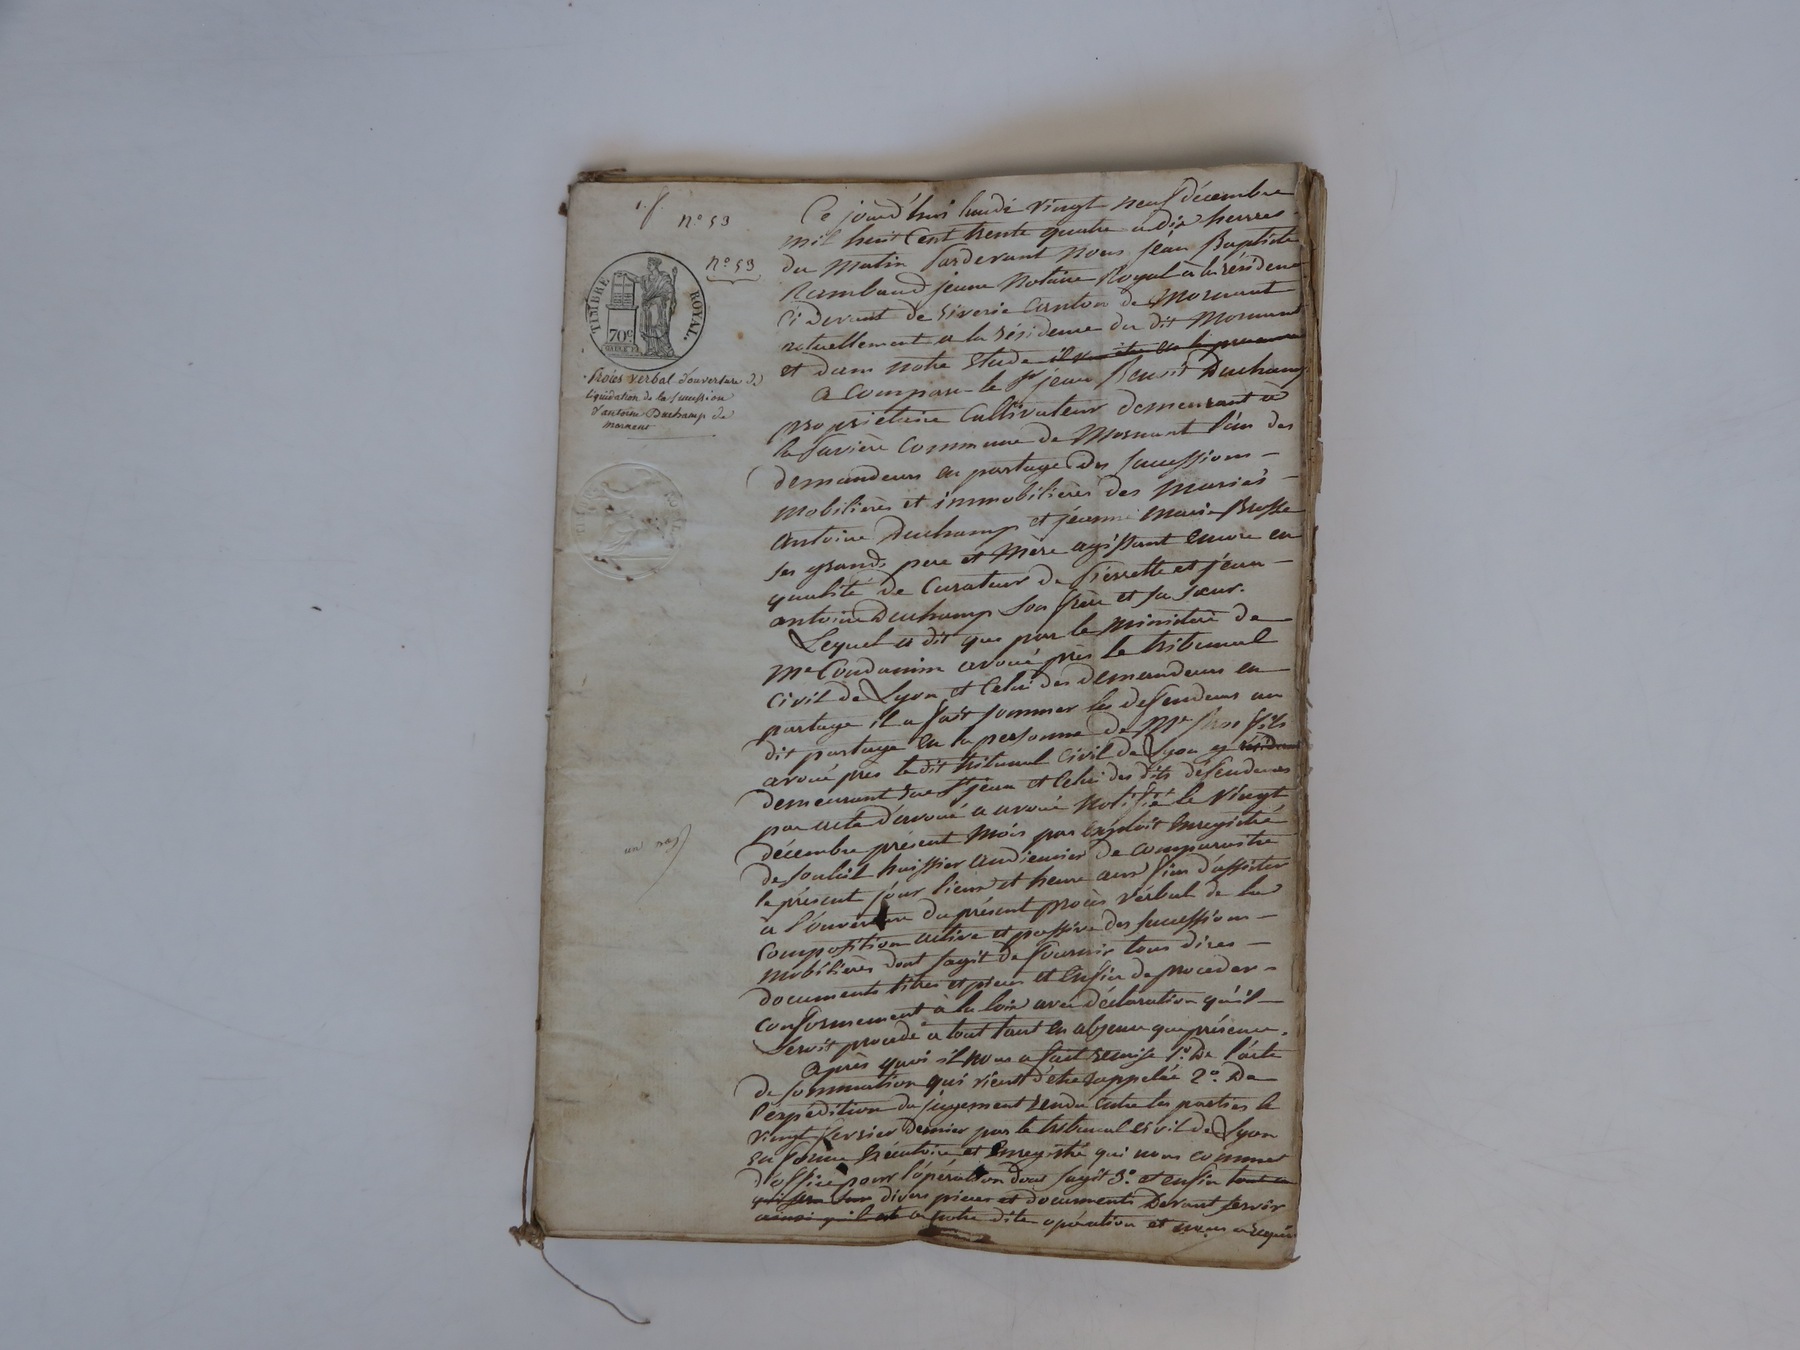 n° 59
n° 59
TIMBRE ROYAL.
70c
Procès verbal d'ouverture de
liquidation de la succession
d'antoine Duchamp de
mornant
Ce jourd'hui lundi vingt neuf décembre
mil huit Cent trente quatre a dix heures
du matin pardevant nous jean Baptiste
Rambaud jeune Notaire Royal à la résidence
Ci devant de riverie Canton de Mornant
actuellement a la résidence du dit Mornant
et dans notre Etude
a Comparu le Sr jean Benoit Duchamp
propriétaire Cultivateur demeurant a
la Commune de Mornant l'un des
demandeurs en partage des successions
mobilières et immobilières des mariés
antoine Duchamp et jeanne Marie Brosse
ses grands pere et Mère agissant encore en
qualité de Curateur de pierrette et jean
antoine Duchamp son frère et sa sœur.
Lequel a dit que par le ministère de
Me Condamin avoué près le tribunal
Civil de Lyon et Celui des demandeurs en
partage il a fait sommer les defendeurs au
dit partage en la personne de Me fils
avoué près le dit tribunal Civil de Lyon y
demeurant rue St jean et Celui des dits défendeurs
par acte d'avoué a avoué notifié le vingt
décembre présent mois par exploit enregistré
de huissier audiencier de comparoitre
le présent jour lieu et heure aux fins d'assister
a l'ouverture du présent procès verbal de la
Composition active et passive des successions
mobilières dont sagit de fournir tous dires
documents titres et pieces et enfin de proceder
conformement à la loi avec déclaration qu'il
seroit procédé a tout tant en absence que présence.
après quoi il nous a fait remise 1° de l'acte
de sommation qui vient d'être rappelée 2° de
l'expédition du jugement rendu entre les parties le
vingt fevrier dernier par le tribunal civil de Lyon
en forme Exécutoire et Enregistré qui nous commet
d'office pour l'opération dont sagit 3° et enfin
divers pieces et documents devant servir
a notre dite opération et nous a requis